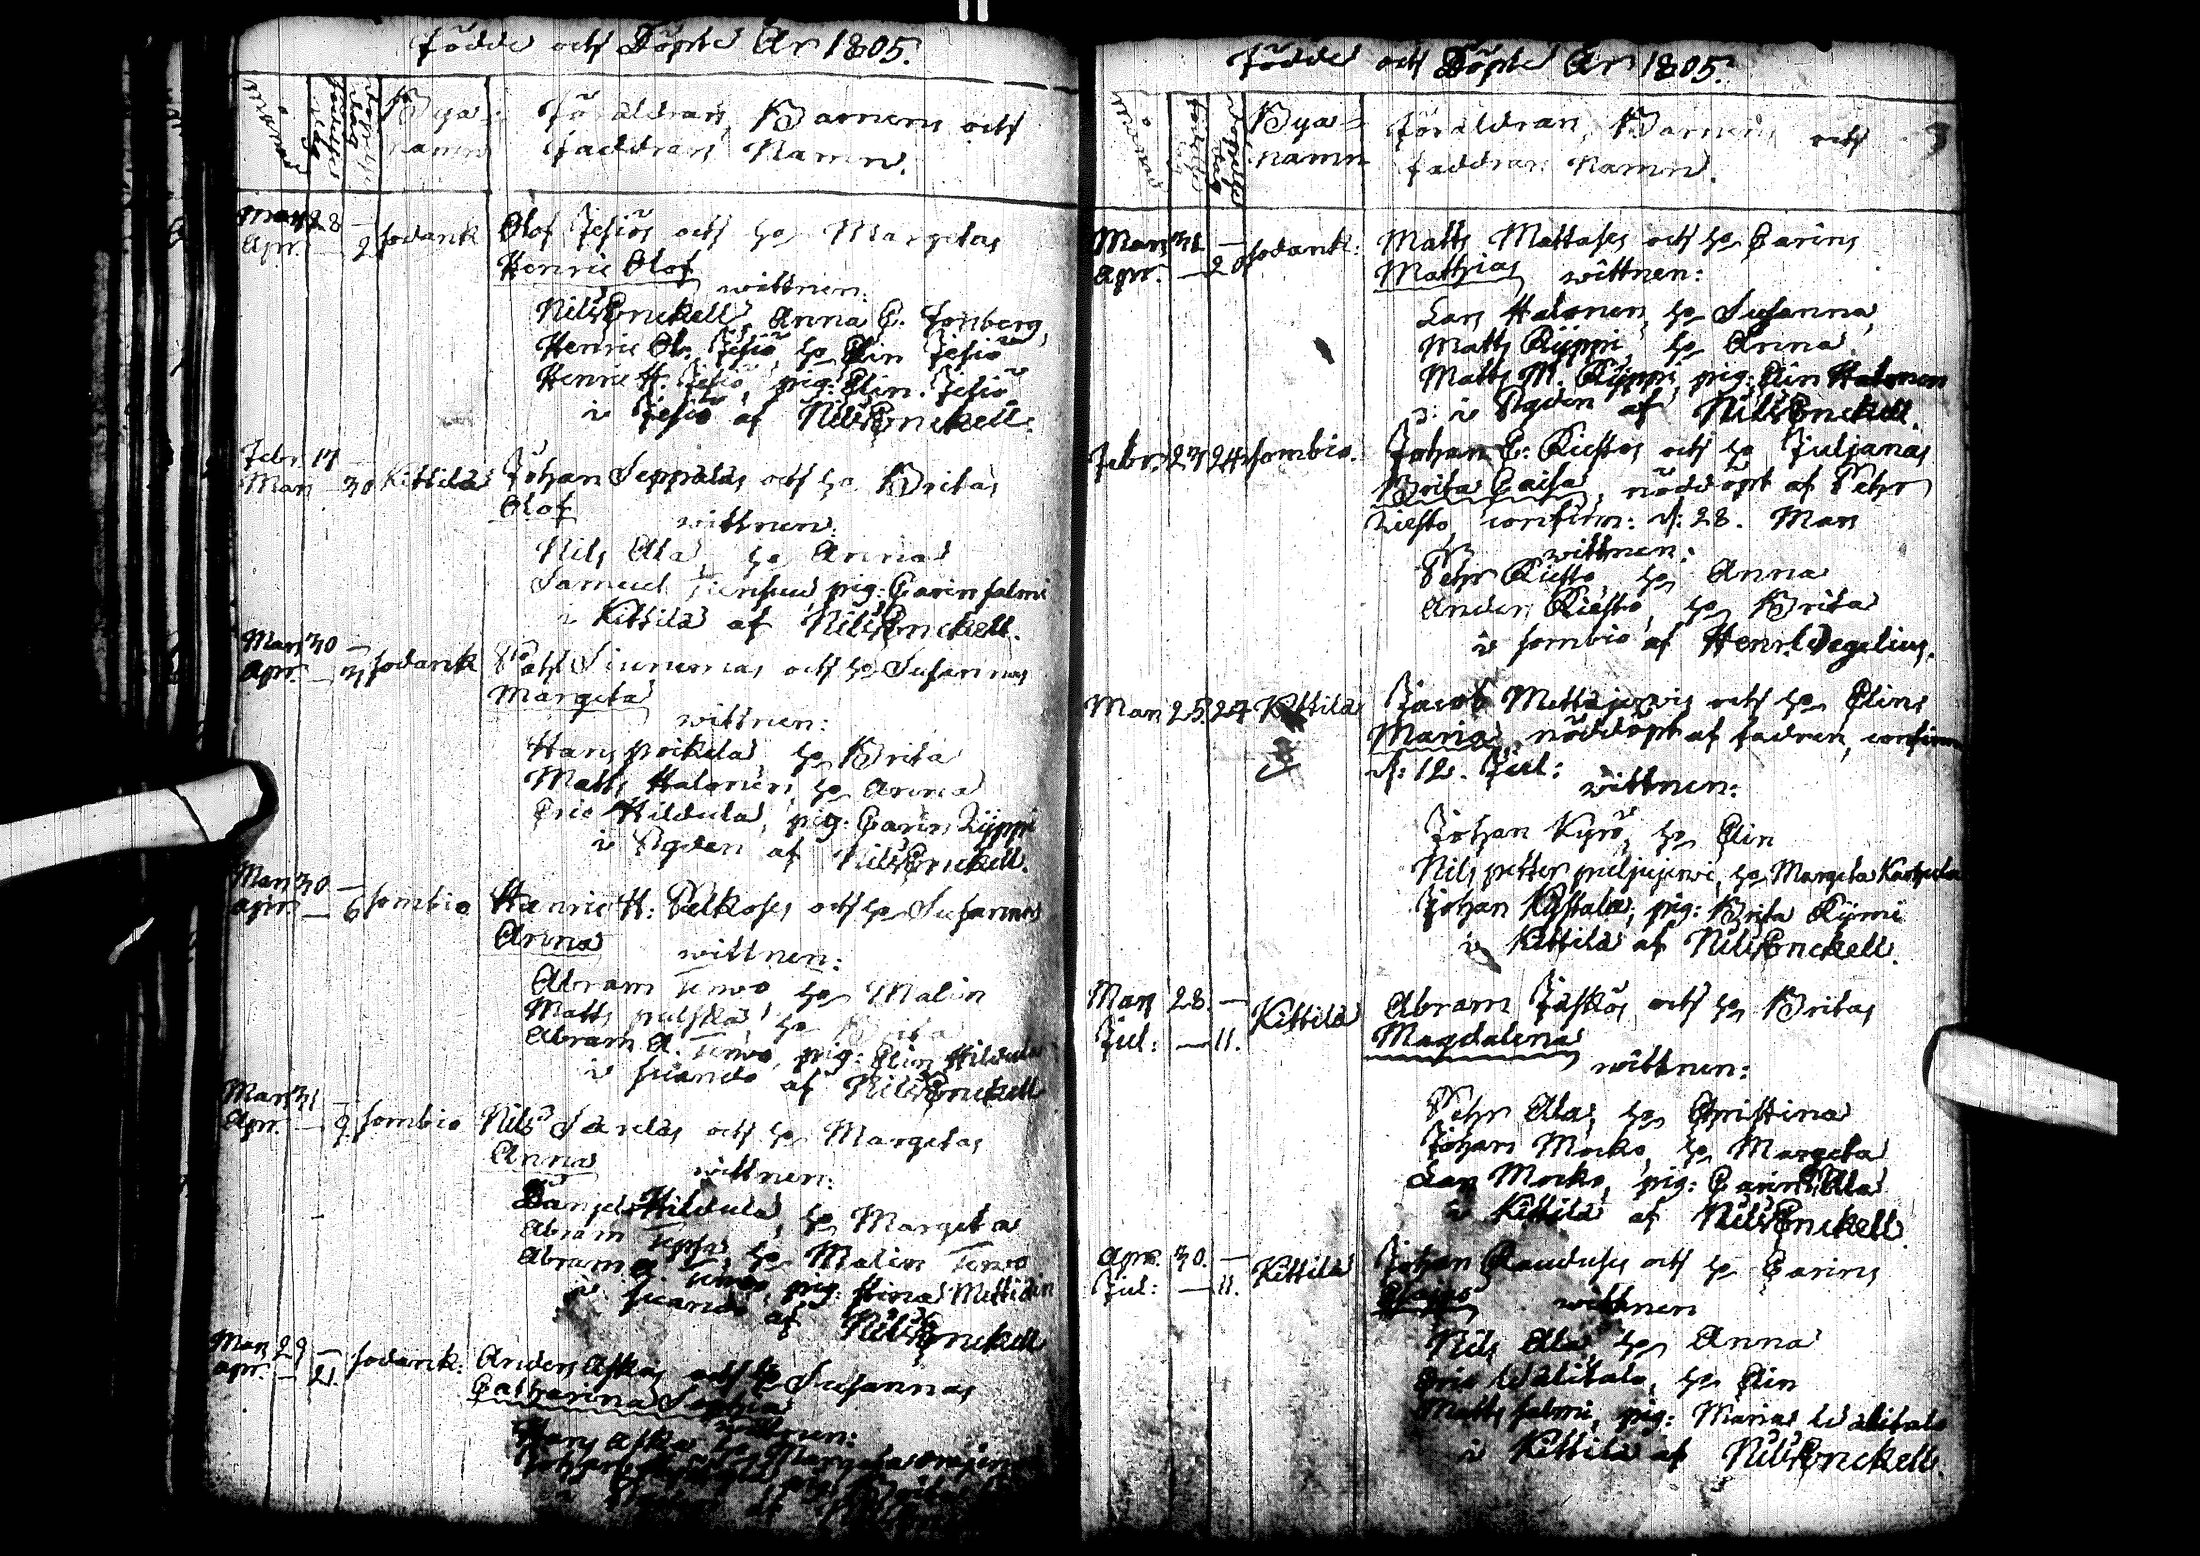 Födde och Döpte År 1805.
Månad
Födelse dag
Döpelse dag
Bya namn
Föräldrars, Barnens och
Faddrars Namn.
Mars 28 —
Apr. — 2 Sodank
Olof Jesiös och h: Margetas
Henric Olof
wittnen:
Nils Enckell, Anna C. Fonberg,
Henric Ol. Jesiö, h: Elin Jesiö
Henric H. Jesiö, pig: Elin Jesiö
i Jesiö af Nils Enckell.
Febr. 17
Mars — 30 Kittilä
Johan Seppäläs och h: Britas
Olof
wittnen:
Nils Ala, h: Anna
Samuel pig: Carin Salmi
i Kittilä af Nils Enckell.
Mars 30 —
Apr. — 3 Sodank
Påhl Siurumas och h: Susannas
Margeta
wittnen:
Hans Poikela, h: Brita
Matts Halonen, h: Anna
Eric Hildula, pig: Carin Kyppi
i Ägden af Nils Enckell.
Mars 30 —
Apr. — 6 Sombio
Henric H: Pelkoses och h: Susannas
Anna
wittnen:
Abram Terwo, h: Malin
Matts Pulska, h: Brita
Abram A. Terwo, pig: Elin Hildula
i Suando af Nils Enckell
Mars 31 —
Apr. — 9 Sombio
Nils Säreläs och h: Margetas
Anna
wittnen:
Daniel Hildula, h: Margeta
Abram h: Malin Terwo
Abram A. Terwo, pig: Stina
i Suando af Nils Enckell
Mars 29 —
Apr. — 21. Sodank.
Anders Askas och h: Susannas
Catharina Sophia
wittnen:
Hans Aska, h: Margeta
Johan
Födde och Döpte År 1805.
Månad
Födelse dag
Döpelse dag
Bya namn
Föräldrars, Barnens och
Faddrars Namn.
3
Mars 31 —
Apr. — 20 Sodank:
Matts Mattases och h: Carins
Mathias wittnen:
Lars Halonen, h: Susanna
Matts Kyppi, h: Anna
Matts M. Kyppi, pig: Elin Halonen
i Ägden af Nils Enckell.
Febr. 23 24 Sombio.
Johan E: Kiestos och h: Juljanas
Brita Caisa, nöddöpt af Pehr
Kiesto, confirm: d: 28. Mars
wittnen:
Pehr Kiesto, h: Anna
Anders Kiesto, h: Brita
i Sombio af Henr. Wegelius.
Mars 25 27 Kittilä
Jacob Mettäjerwis och h: Elins
Maria, nöddöpt af fadren, confirm
d: 12. Jul:
wittnen:
Johan Kyrö, h: Elin
Nils Petter Puljujerwi, h: Margeta
Johan Kystala, pig: Brita Kymi
i Kittilä af Nils Enckell.
Mars 28. — Kittilä
Jul: — 11.
Abram Jäskös och h: Britas
Magdalena
wittnen:
Pehr Ala, h: Christina
Johan Mocko, h: Margeta
Lars Mocko, pig: Carin Ala
i Kittilä af Nils Enckell.
Apr. 30. — Kittilä
Jul: — 11.
Johan Rauduses och h: Carins
wittnen
Nils Ala, h: Anna
Eric Walitalo, h: Elin
Matts Salmi, pig: Maria Walitalo
i Kittilä af Nils Enckell.